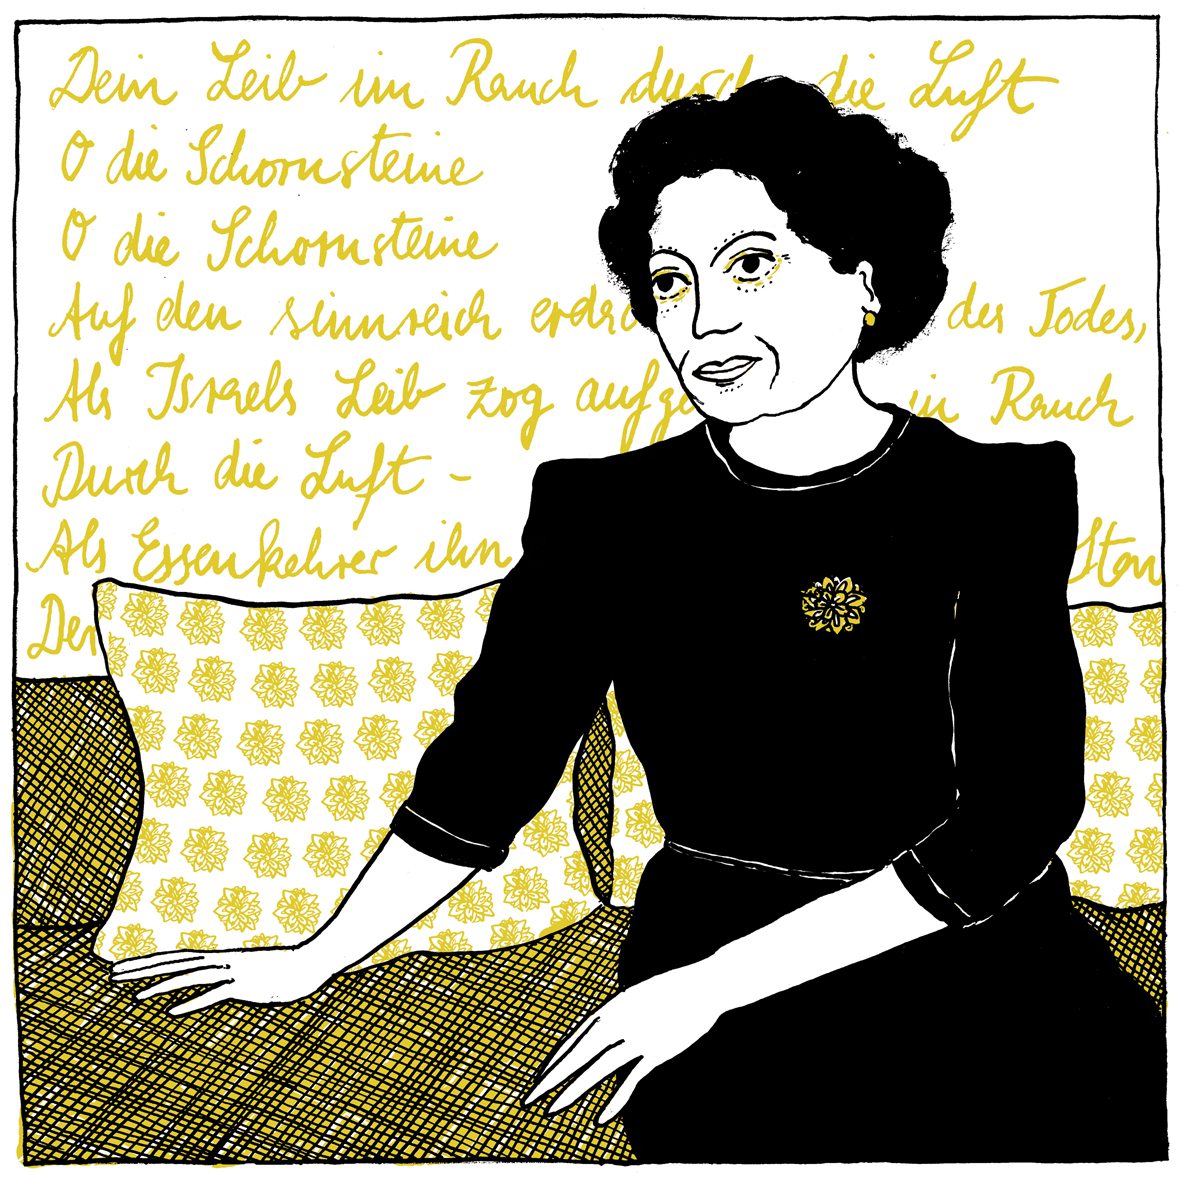 Dein Leib im Rauch durch die Luft
O die Schornsteine
O die Schornsteine
Auf den sinnreich erd des Todes,
Als Israels Leib zog aufge in Rauch
Durch die Luft –
Als Essenkehrer ihn Stern
Der